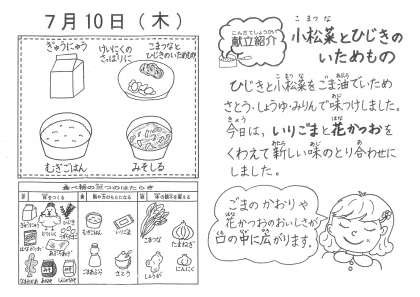 7月10日（木）
ぎゅうにゅう
けいにくの
さっぱりに
こまつなと
ひじきのいためもの
むぎごはん
みそしる
食べ物の三つのはたらき
ぎゅうにゅう
むぎごはん
さとう
こまつな
たまねぎ
しょうが
にんにく
献立紹介
小松菜とひじきの
いためもの
ひじきと小松菜をごま油でいため
さとう・しょうゆ・みりんで味つけしました。
今日は、いりごまと花かつおを
くわえて新しい味のとり合わせに
しました。
ごまのかおりや
花かつおのおいしさが
口の中に広がります。